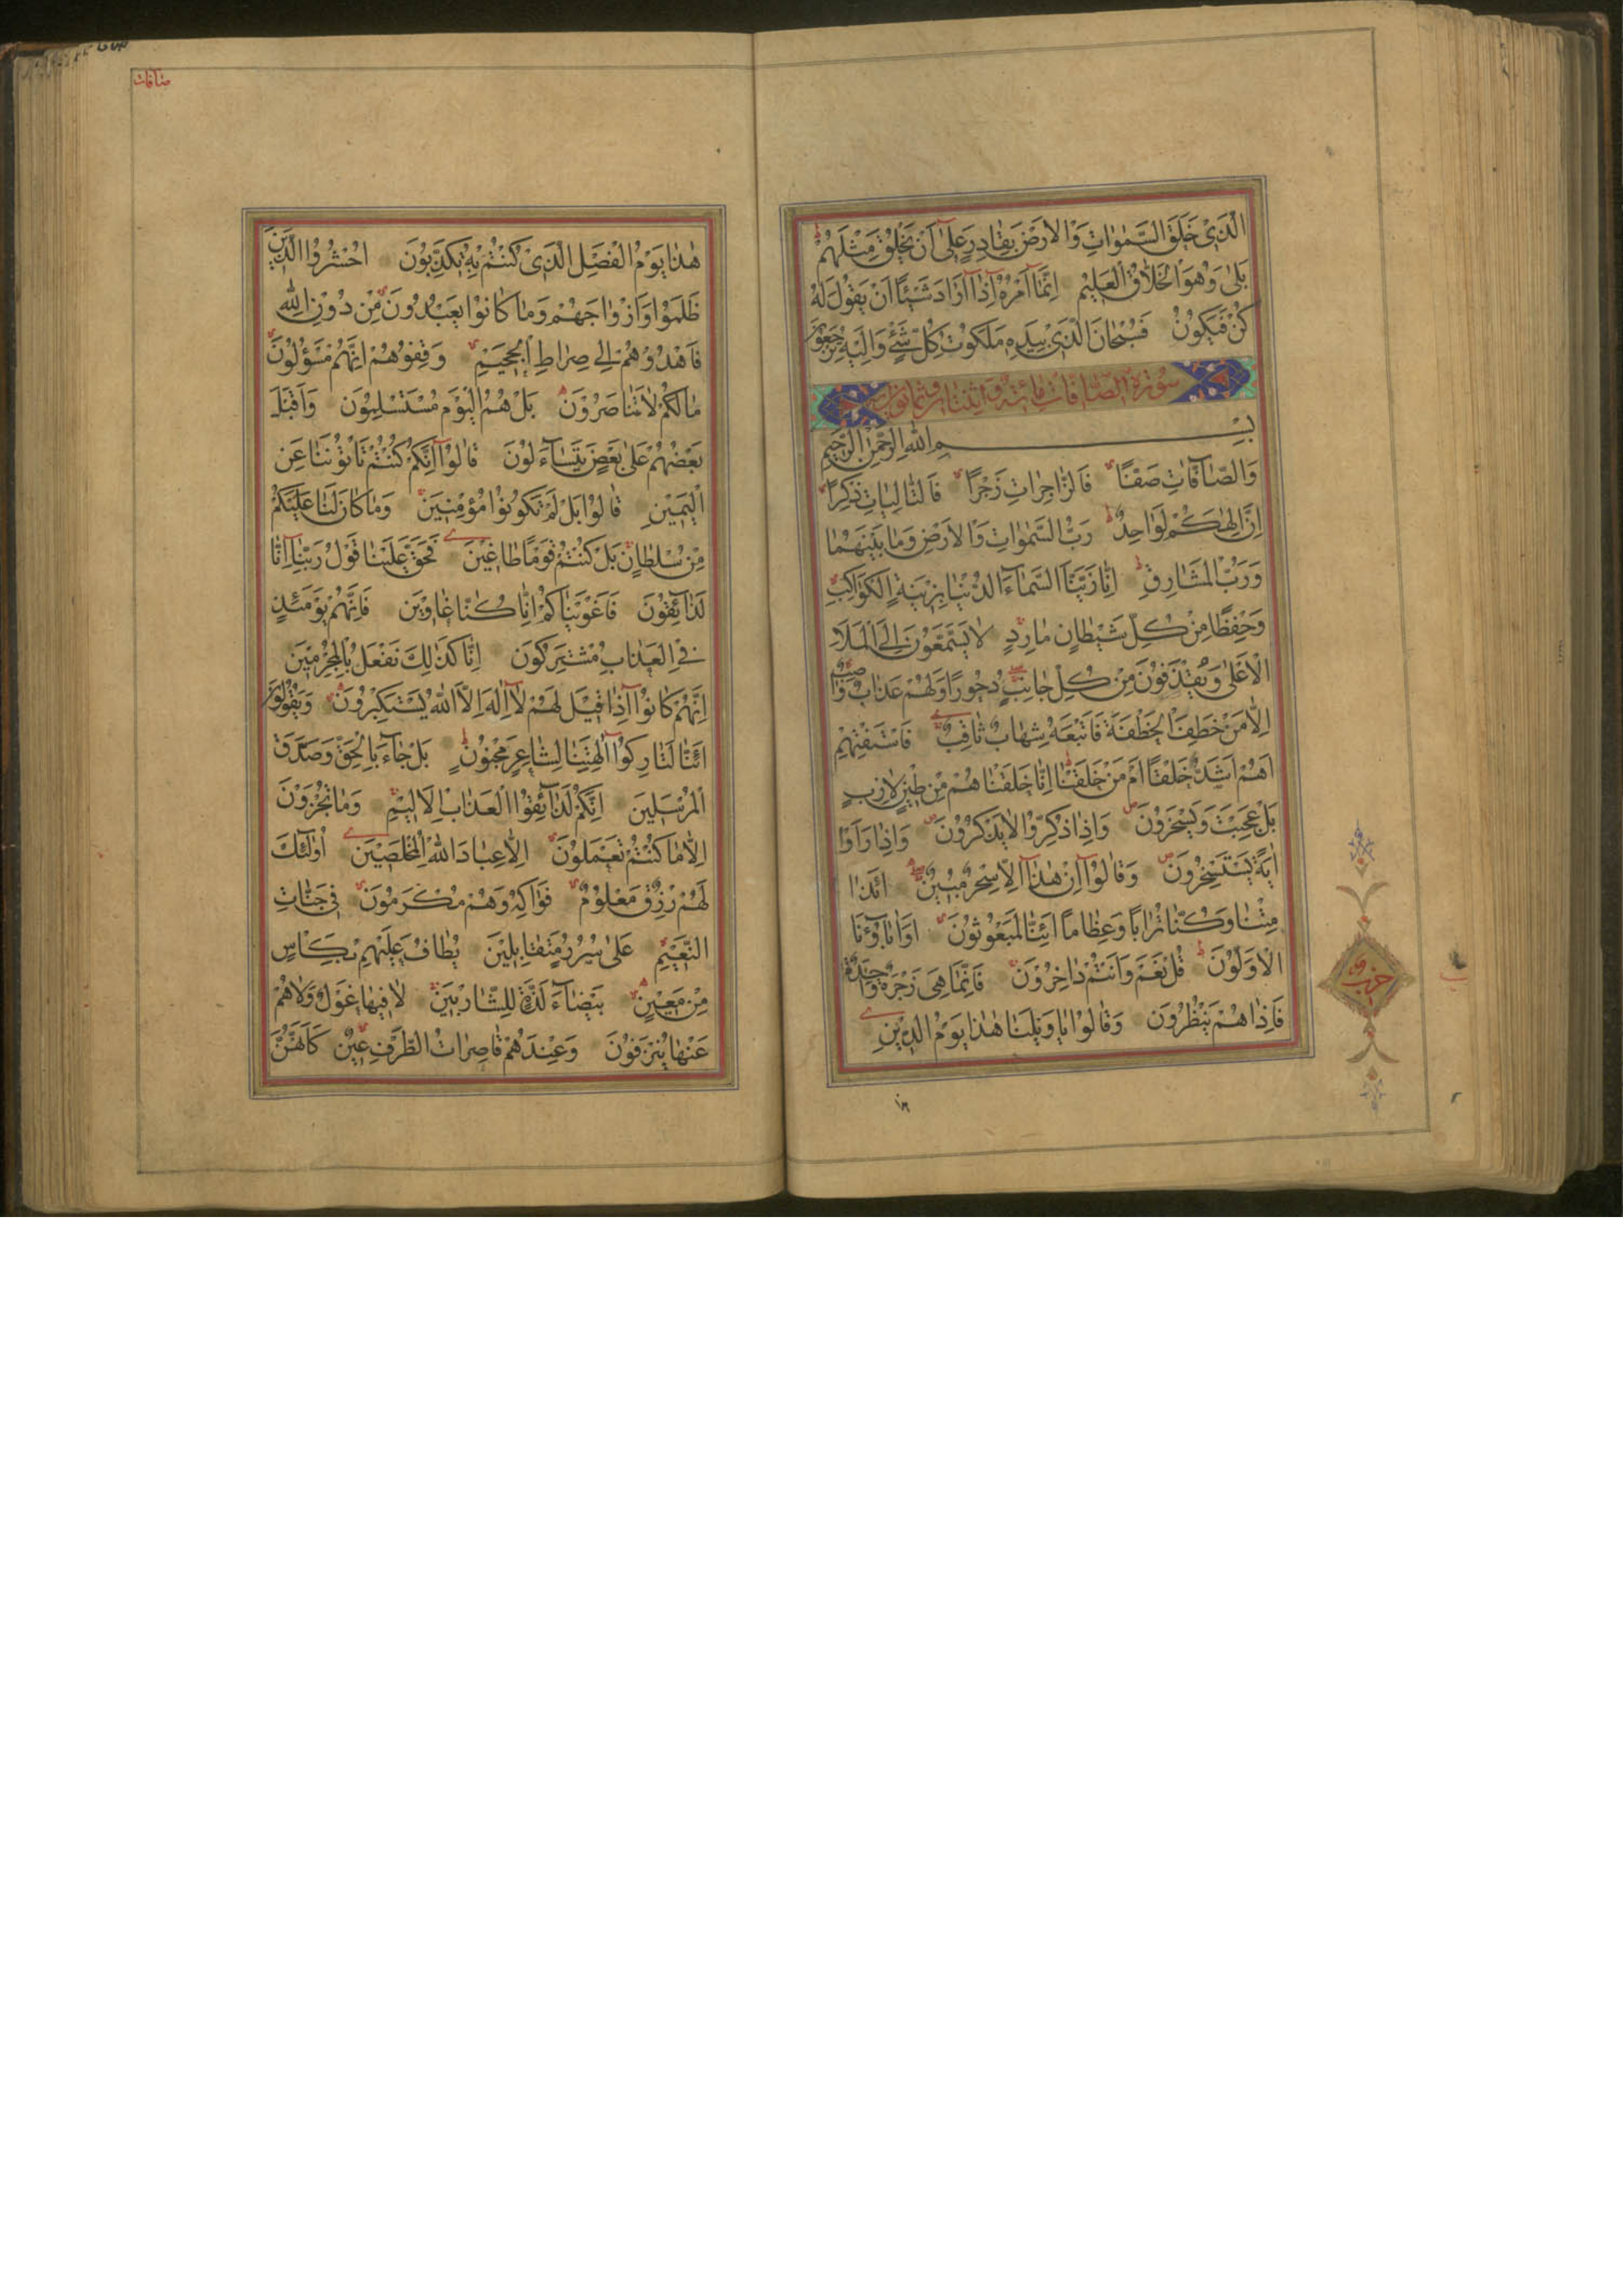 الَّذِي خَلَقَ السَّمٰوَاتِ وَالْاَرْضَ بِقَادِرٍ عَلٰى اَنْ يَخْلُقَ مِثْلَهُمْ
بَلٰى وَهُوَ الْخَلَّاقُ الْعَلِيمُ اِنَّمَا اَمْرُهُ اِذَا اَرَادَ شَيْئًا اَنْ يَقُولَ لَهُ
كُنْ فَيَكُونُ فَسُبْحَانَ الَّذِي بِيَدِهِ مَلَكُوتُ كُلِّ شَيْءٍ وَاِلَيْهِ تُرْجَعُونَ
سورة الصافات مائة واثنتان وثمانون اية
بِسْمِ اللّٰهِ الرَّحْمٰنِ الرَّحِيمِ
وَالصَّافَّاتِ صَفًّا فَالزَّاجِرَاتِ زَجْرًا فَالتَّالِيَاتِ ذِكْرًا
اِنَّ اِلٰهَكُمْ لَوَاحِدٌ رَبُّ السَّمٰوَاتِ وَالْاَرْضِ وَمَا بَيْنَهُمَا
وَرَبُّ الْمَشَارِقِ اِنَّا زَيَّنَّا السَّمَاءَ الدُّنْيَا بِزِينَةٍ الْكَوَاكِبِ
وَحِفْظًا مِنْ كُلِّ شَيْطَانٍ مَارِدٍ لَا يَسَّمَّعُونَ اِلَى الْمَلَاِ
الْاَعْلٰى وَيُقْذَفُونَ مِنْ كُلِّ جَانِبٍ دُحُورًا وَلَهُمْ عَذَابٌ وَاصِبٌ
اِلَّا مَنْ خَطِفَ الْخَطْفَةَ فَاَتْبَعَهُ شِهَابٌ ثَاقِبٌ فَاسْتَفْتِهِمْ
اَهُمْ اَشَدُّ خَلْقًا اَمْ مَنْ خَلَقْنَا اِنَّا خَلَقْنَاهُمْ مِنْ طِينٍ لَازِبٍ
بَلْ عَجِبْتَ وَيَسْخَرُونَ وَاِذَا ذُكِّرُوا لَا يَذْكُرُونَ وَاِذَا رَاَوْا
اٰيَةً يَسْتَسْخِرُونَ وَقَالُوا اِنْ هٰذَا اِلَّا سِحْرٌ مُبِينٌ ائِذَا
مِتْنَا وَكُنَّا تُرَابًا وَعِظَامًا ائِنَّا لَمَبْعُوثُونَ اَوَاٰبَاؤُنَا
الْاَوَّلُونَ قُلْ نَعَمْ وَاَنْتُمْ دَاخِرُونَ فَاِنَّمَا هِيَ زَجْرَةٌ وَاحِدَةٌ
فَاِذَا هُمْ يَنْظُرُونَ وَقَالُوا يَا وَيْلَنَا هٰذَا يَوْمُ الدِّينِ
حزب
صافات
هٰذَا يَوْمُ الْفَصْلِ الَّذِي كُنْتُمْ بِهِ تُكَذِّبُونَ اُحْشُرُوا الَّذِينَ
ظَلَمُوا وَاَزْوَاجَهُمْ وَمَا كَانُوا يَعْبُدُونَ مِنْ دُونِ اللّٰهِ
فَاهْدُوهُمْ اِلٰى صِرَاطِ الْجَحِيمِ وَقِفُوهُمْ اِنَّهُمْ مَسْؤُلُونَ
مَا لَكُمْ لَا تَنَاصَرُونَ بَلْ هُمُ الْيَوْمَ مُسْتَسْلِمُونَ وَاَقْبَلَ
بَعْضُهُمْ عَلٰى بَعْضٍ يَتَسَاءَلُونَ قَالُوا اِنَّكُمْ كُنْتُمْ تَاْتُونَنَا عَنِ
الْيَمِينِ قَالُوا بَلْ لَمْ تَكُونُوا مُؤْمِنِينَ وَمَا كَانَ لَنَا عَلَيْكُمْ
مِنْ سُلْطَانٍ بَلْ كُنْتُمْ قَوْمًا طَاغِينَ فَحَقَّ عَلَيْنَا قَوْلُ رَبِّنَا اِنَّا
لَذَائِقُونَ فَاَغْوَيْنَاكُمْ اِنَّا كُنَّا غَاوِينَ فَاِنَّهُمْ يَوْمَئِذٍ
فِي الْعَذَابِ مُشْتَرِكُونَ اِنَّا كَذٰلِكَ نَفْعَلُ بِالْمُجْرِمِينَ
اِنَّهُمْ كَانُوا اِذَا قِيلَ لَهُمْ لَا اِلٰهَ اِلَّا اللّٰهُ يَسْتَكْبِرُونَ وَيَقُولُونَ
ائِنَّا لَتَارِكُوا اٰلِهَتِنَا لِشَاعِرٍ مَجْنُونٍ بَلْ جَاءَ بِالْحَقِّ وَصَدَّقَ
الْمُرْسَلِينَ اِنَّكُمْ لَذَائِقُوا الْعَذَابِ الْاَلِيمِ وَمَا تُجْزَوْنَ
اِلَّا مَا كُنْتُمْ تَعْمَلُونَ اِلَّا عِبَادَ اللّٰهِ الْمُخْلَصِينَ اُولٰئِكَ
لَهُمْ رِزْقٌ مَعْلُومٌ فَوَاكِهُ وَهُمْ مُكْرَمُونَ فِي جَنَّاتِ
النَّعِيمِ عَلٰى سُرُرٍ مُتَقَابِلِينَ يُطَافُ عَلَيْهِمْ بِكَاْسٍ
مِنْ مَعِينٍ بَيْضَاءَ لَذَّةٍ لِلشَّارِبِينَ لَا فِيهَا غَوْلٌ وَلَا هُمْ
عَنْهَا يُنْزَفُونَ وَعِنْدَهُمْ قَاصِرَاتُ الطَّرْفِ عِينٌ كَاَنَّهُنَّ